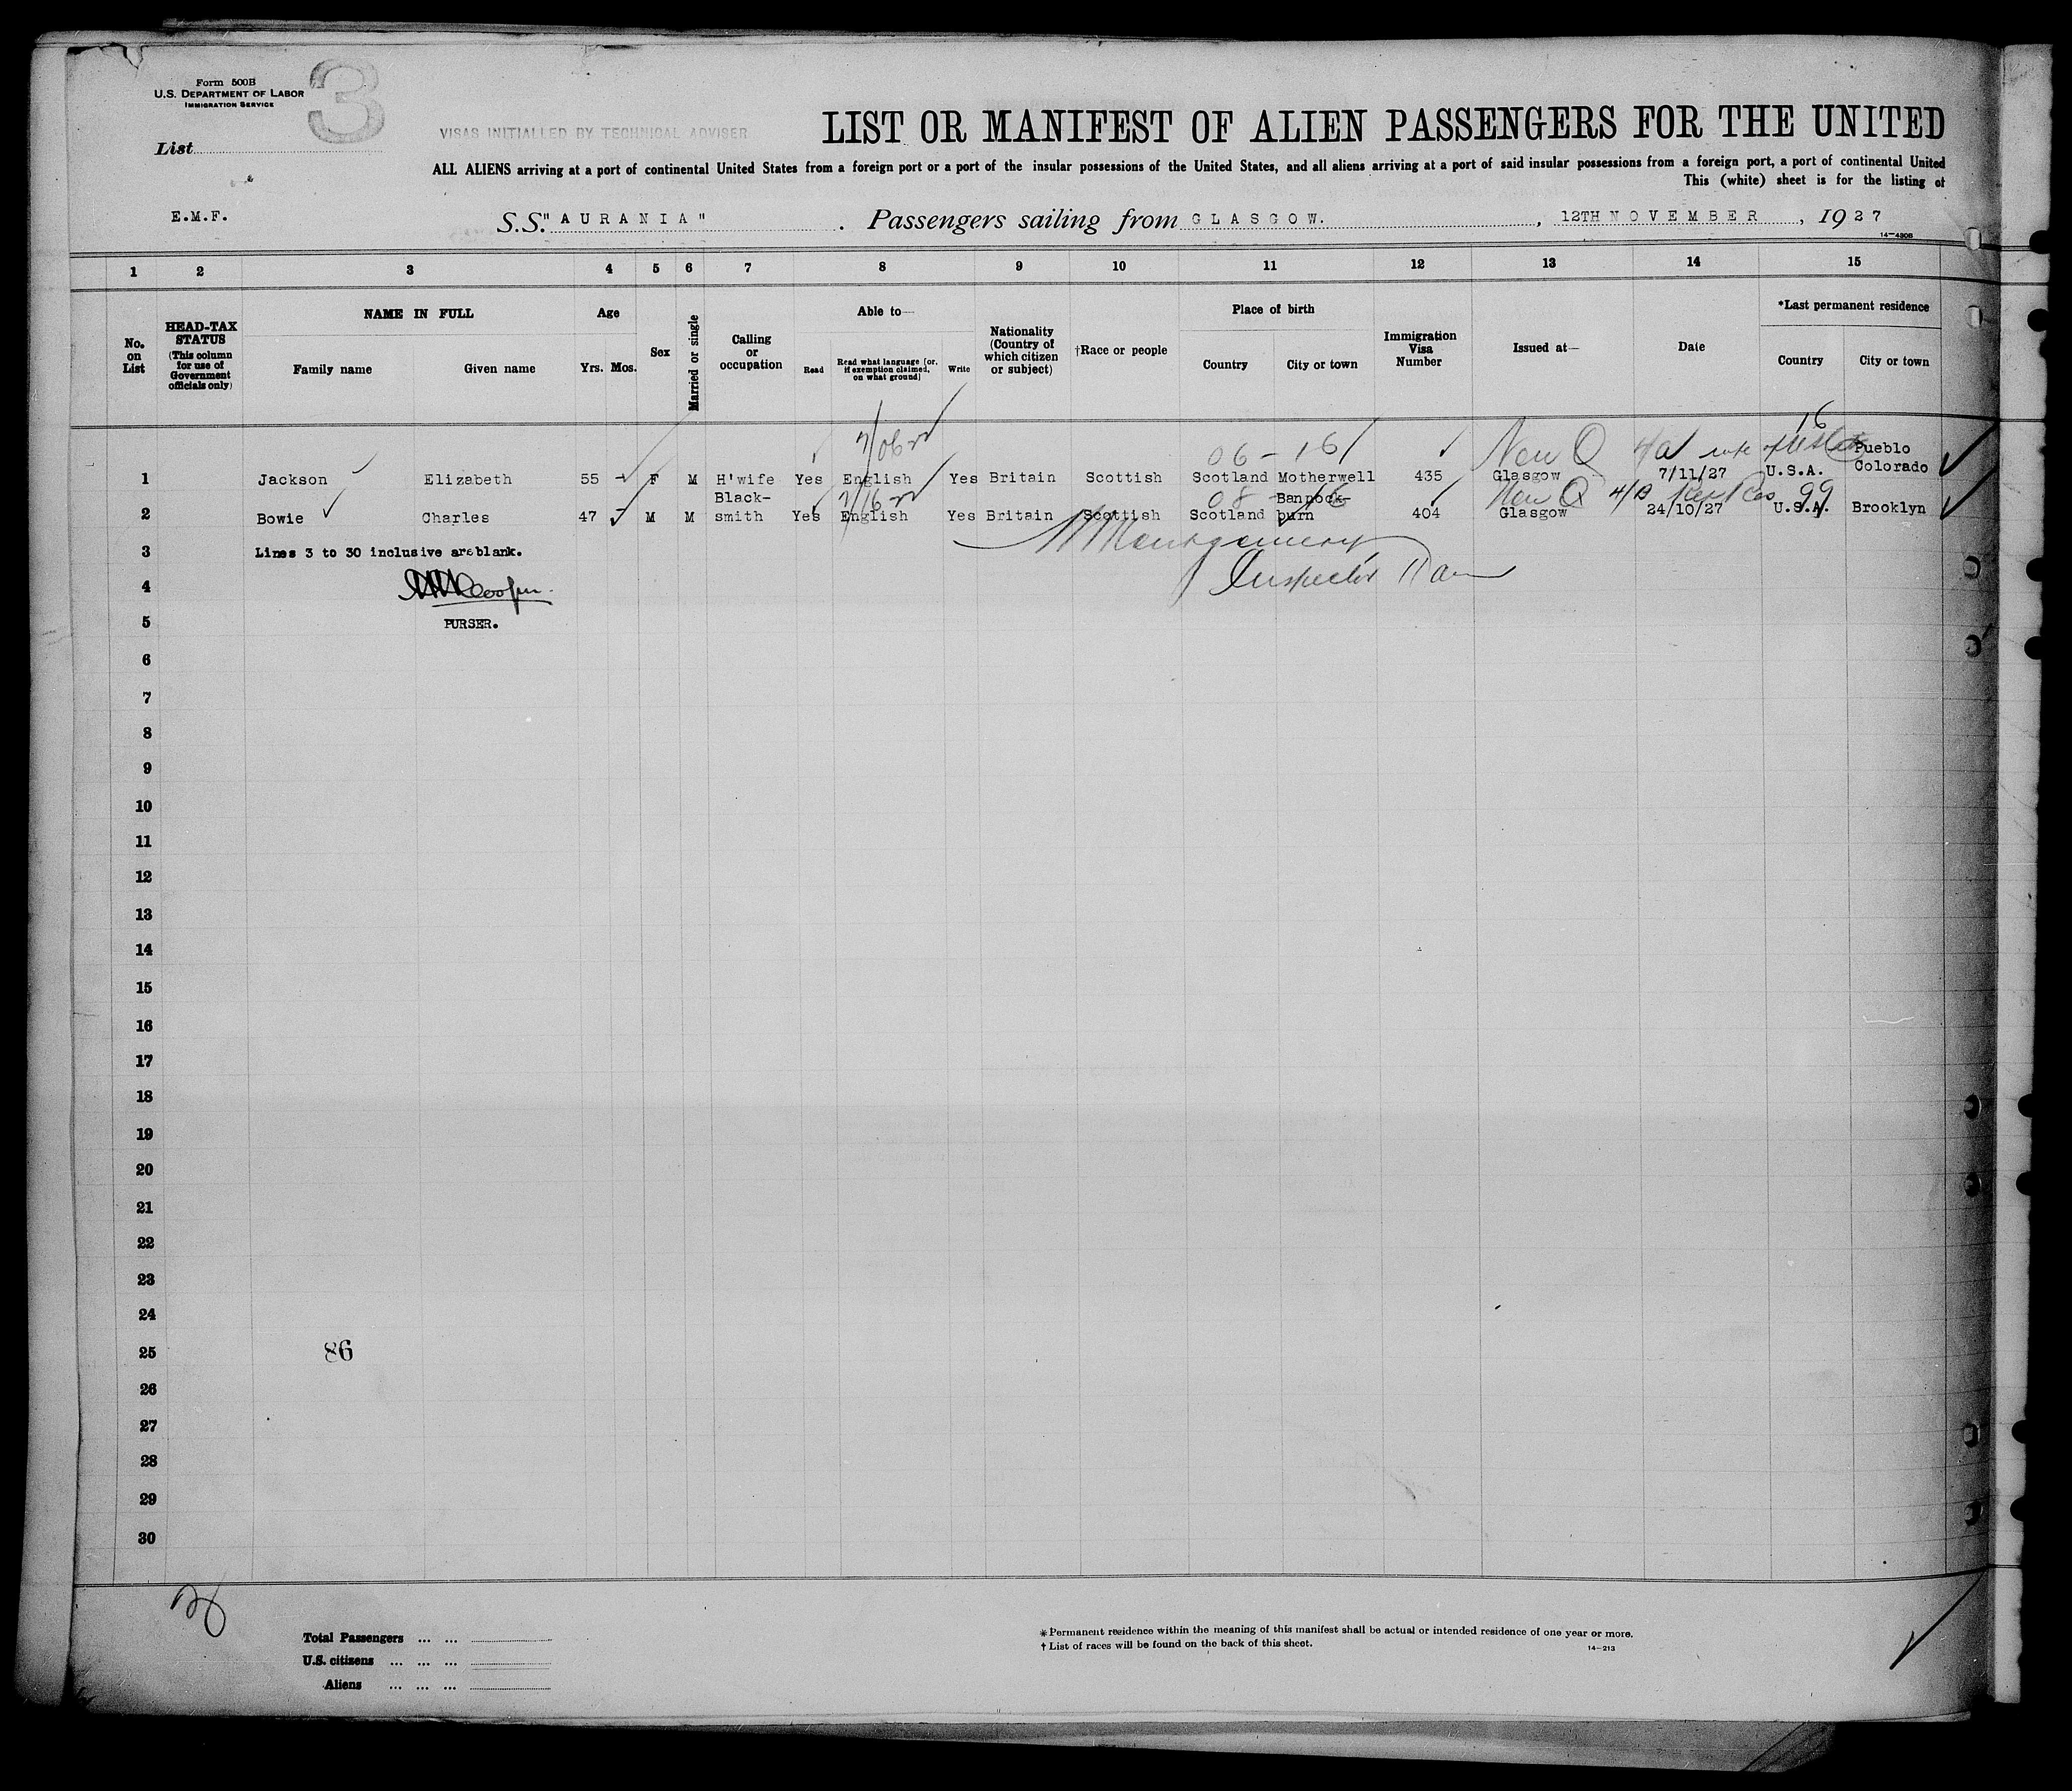 Form 500B
U.S. DEPARTMENT OF LABOR
IMMIGRATION SERVICE
3
List
VISAS INITIALLED BY TECHNICAL ADVISER
LIST OR MANIFEST OF ALIEN PASSENGERS FOR THE UNITED
ALL ALIENS arriving at a port of continental United States from a foreign port or a port of the insular possessions of the United States, and all aliens arriving at a port of said insular possessions from a foreign port, a port of continental United
This (white) sheet is for the listing of
E.M.F.
S.S. "AURANIA". Passengers sailing from GLASGOW., 12TH NOVEMBER, 1927
14-430B
1 2 3 4 5 6 7 8 9 10 11 12 13 14 15
No. on List
HEAD-TAX STATUS (This column for use of Government officials only)
NAME IN FULL
Family name Given name
Age
Yrs. Mos.
Sex
Married or single
Calling or occupation
Able to—
Read
Read what language [or, if exemption claimed, on what ground]
Write
Nationality (Country of which citizen or subject)
†Race or people
Place of birth
Country City or town
Immigration Visa Number
Issued at—
Date
*Last permanent residence
Country City or town
06 - 16 Non Q 4a wife of 16
1 Jackson Elizabeth 55 - F M H'wife Yes English Yes Britain Scottish Scotland Motherwell 435 Glasgow 7/11/27 U.S.A. Pueblo Colorado
08 - 16 Non Q 4/B Res 99
2 Bowie Charles 47 M M Black-smith Yes English Yes Britain Scottish Scotland Bannock-burn 404 Glasgow 24/10/27 U.S.A. Brooklyn
3 Lines 3 to 30 inclusive are blank.
Montgomery
4 Cooper
Inspector
5 PURSER.
6
7
8
9
10
11
12
13
14
15
16
17
18
19
20
21
22
23
24
25 86
26
27
28
29
30
Total Passengers ... ...
U.S. citizens ... ... ...
Aliens ... ... ...
* Permanent residence within the meaning of this manifest shall be actual or intended residence of one year or more.
† List of races will be found on the back of this sheet. 14-213